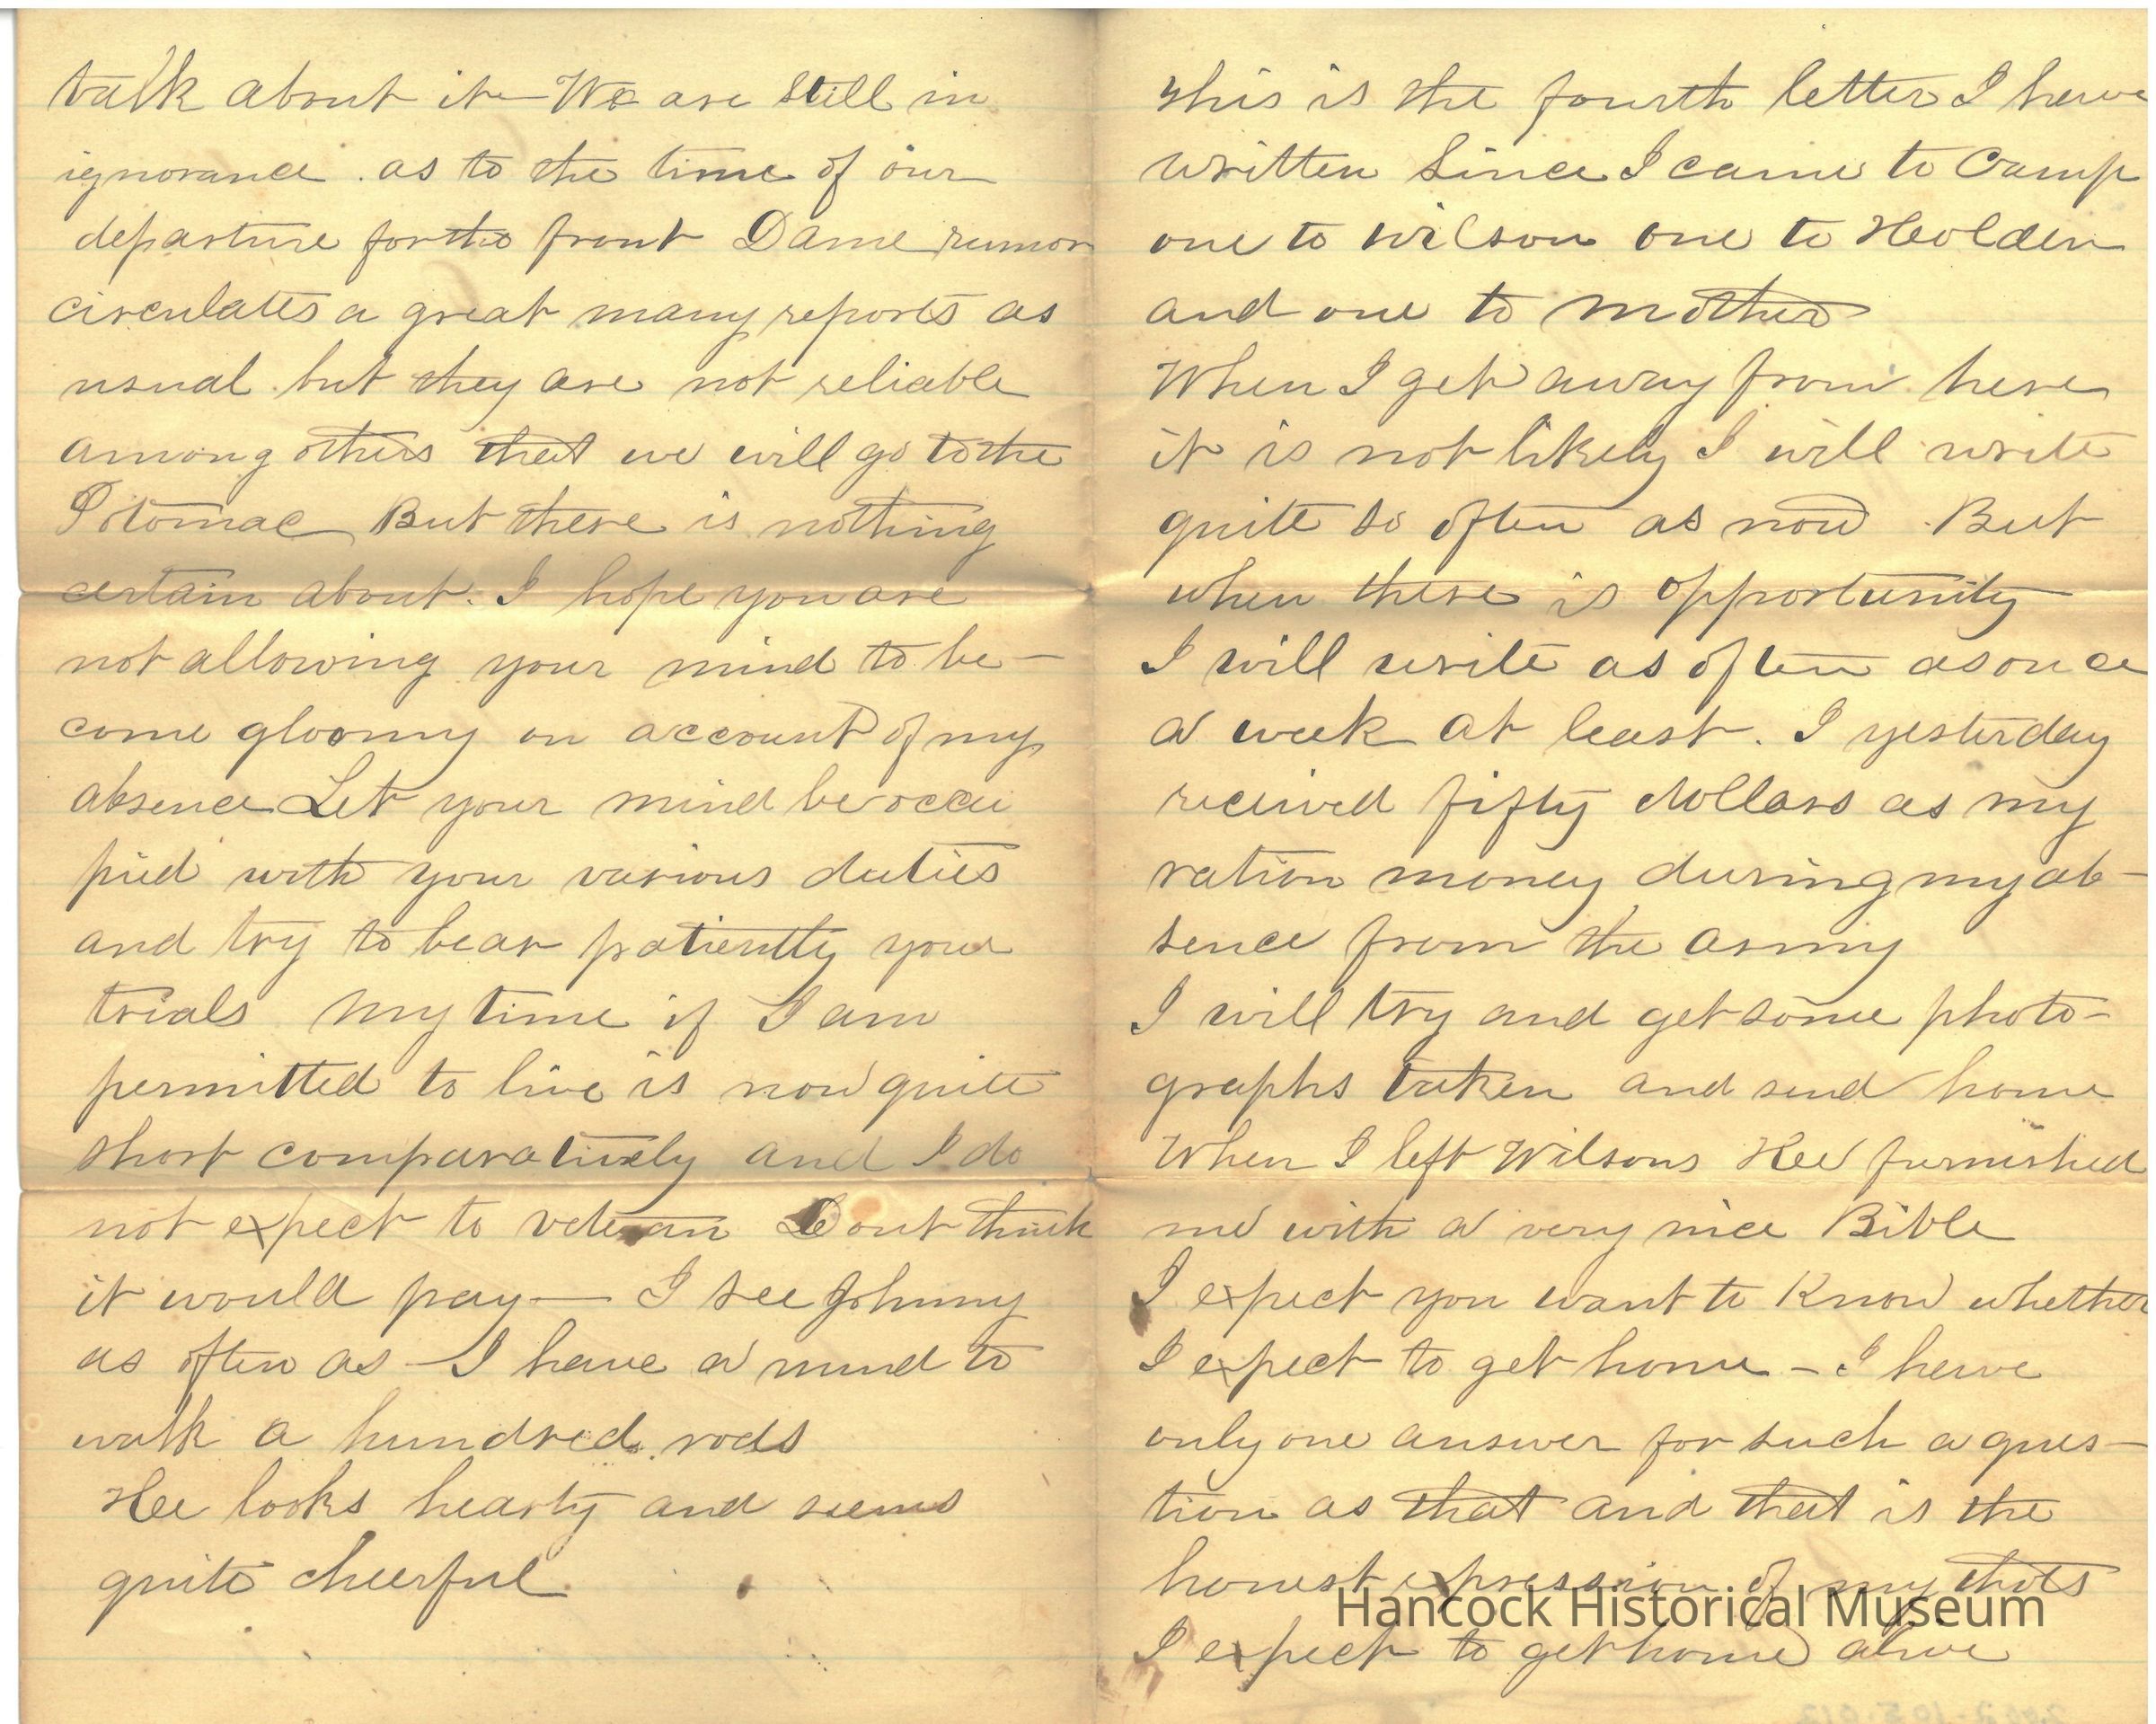 talk about it — We are still in
ignorance . as to the time of our
departure for the front Dame rumor
circulates a great many reports as
usual but they are not reliable
among others that we will go to the
Potomac But there is nothing
certain about. I hope you are
not allowing your mind to be-
come gloomy on account of my
absence Let your mind be occu
pied with your various duties
and try to bear patiently your
trials My time if I am
permitted to live is now quite
short comparatively and I do
not expect to veteran Dont think
it would pay — I see Johnny
as often as I have a mind to
walk a hundred rods
Hee looks hearty and seems
quite cheerful
This is the fourth letter I have
written since I came to Camp
one to Wilson one to Holden
and one to Mother
When I get away from here
it is not likely I will write
quite so often as now But
when there is opportunity
I will write as often as once
a week at least. I yesterday
received fifty dollars as my
ration money during my ab-
sence from the army
I will try and get some photo-
graphs taken and send home
When I left Wilsons Hee furnished
me with a very nice Bible
I expect you want to know whether
I expect to get home - I have
only one answer for such a ques-
tion as that and that is the
honest expression of my thots
I expect to get home alive
Hancock Historical Museum